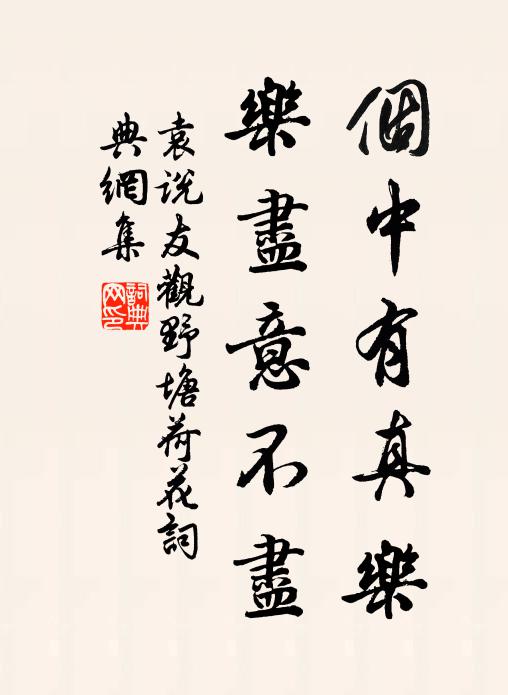 個中有真樂
樂盡意不盡
袁說友觀野塘荷花詞
典網集
詞典網印